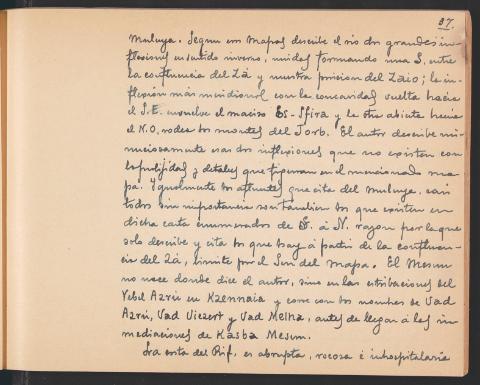 37.
Muluya. Segun esos mapas describe el rio dos grandes in-
flexiones en sentido inverso, unidas formando una S, entre
la confluencia del Zá y nuestra posicion del Zaio; la in-
flexión más meridional con la concavidad vuelta hacia
el S.E. envuelve el macizo Es-Sfira y la otra abierta hacia
el N.O. rodea los montes del Jorb. El autor describe mi-
nuciosamente esas dos inflexiones que no existen con
las y detalles que figuran en el mencionado ma-
pa. Igualmente los afluentes que cita del Muluya, casi
todos sin importancia son tambien los que existen en
dicha carta enumerados de S. á N. razon por la que
solo describe y cita los que hay á partir de la confluen-
cia del Zá, limite por el Sur del mapa. El Mesun
no nace donde dice el autor, sino en las estribaciones del
Yebel Azrú en Kzennaia y corre con los nombres de Uad
Azrú, Uad Uiezert y Uad Melha, antes de llegar á las in-
mediaciones de Kasba Mesun.
La costa del Rif, es abrupta, rocosa é inhospitalaria